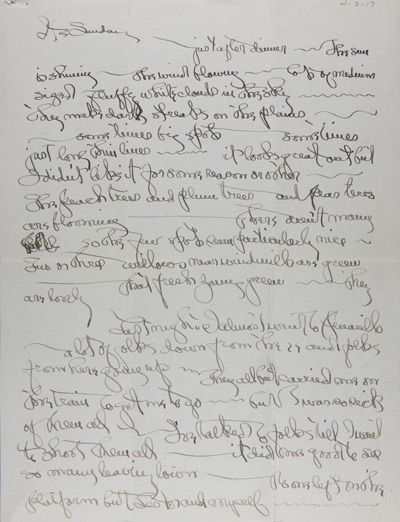 It's Sunday
— just after dinner — The sun
is shining — The wind blowing — lots of medium
sized fluffy white clouds in the sky —
They make dark streaks on the plains
— sometimes big spots — sometimes
just long thin lines — it looks great out but
I didn't like it for some reason or other —
The peach trees and plum trees and pear trees
are blooming — There aren't many
so the few spots seem particularly nice —
Two or three willows near windmills are green
— that fresh young green — They
are lovely
Last night I almost went to Amarillo
— a lot of folks down from there and folks
from here going up — They all but carried me on
the train to get me to go — but I was so sick
of them all — I've talked to folks till I want
to shoot them all — it did me good to see
so many leaving town — No one left on the
platform but and myself —